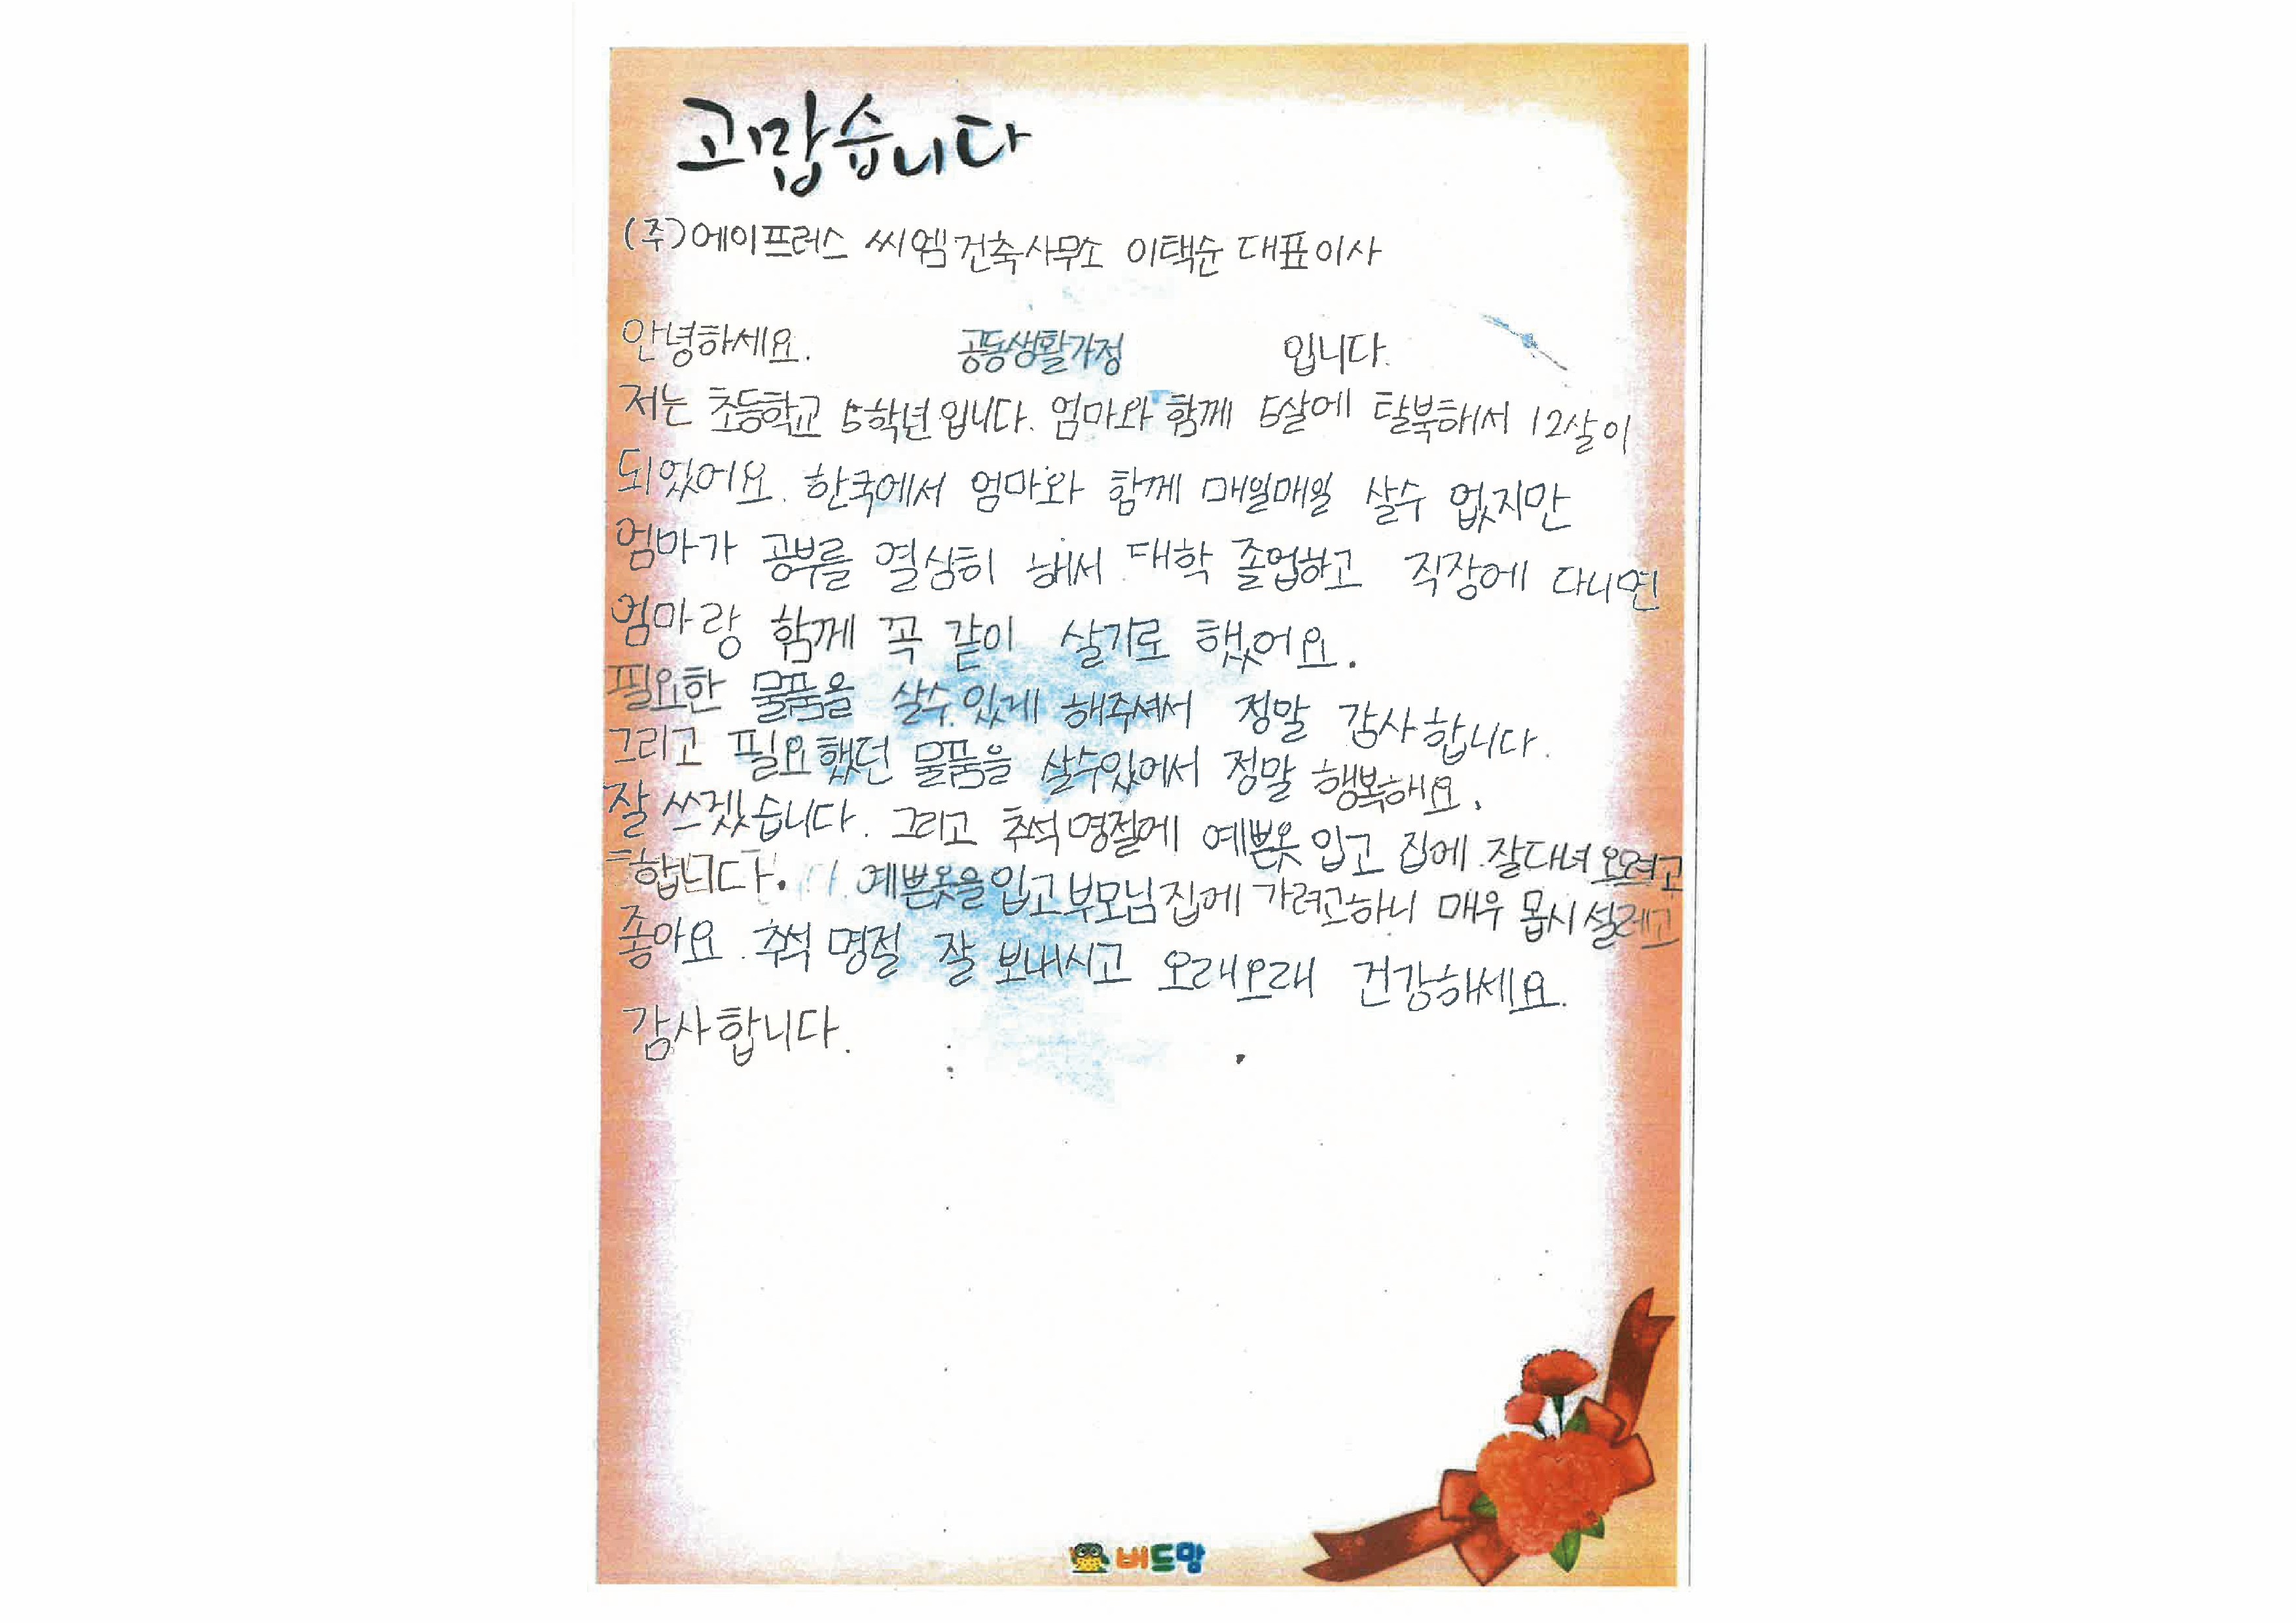 고맙습니다
(주)에이프러스 씨엠건축사무소 이택순 대표이사
안녕하세요. 공동생활가정 입니다.
저는 초등학교 5학년 입니다. 엄마와 함께 5살에 탈북해서 12살이
되었어요. 한국에서 엄마와 함께 매일매일 살수 없지만
엄마가 공부를 열심히 해서 대학 졸업하고 직장에 다니면
엄마랑 함께 꼭 같이 살기로 했어요.
필요한 물품을 살수 있게 해주셔서 정말 감사합니다.
그리고 필요했던 물품을 살수있어서 정말 행복해요.
잘 쓰겠습니다. 그리고 추석명절에 예쁜옷 입고 집에 잘다녀 오려고
합니다. 예쁜옷을 입고 부모님 집에 가려고하니 매우 몹시 설레고
좋아요. 추석 명절 잘 보내시고 오래오래 건강하세요.
감사합니다.
버드맘